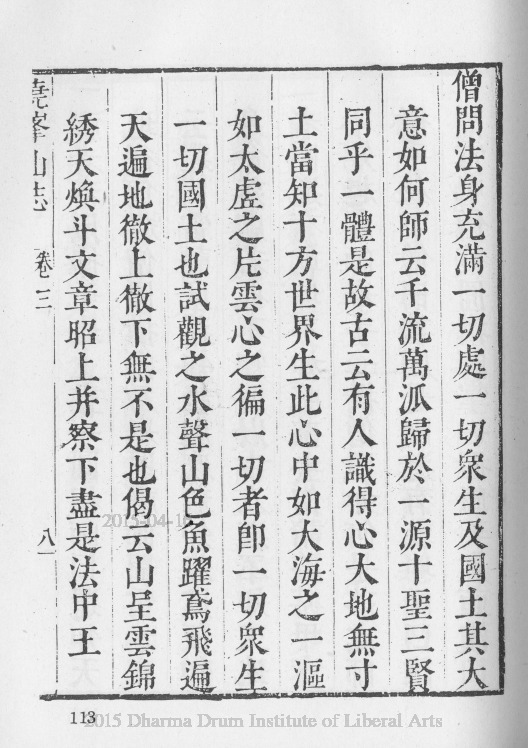 僧問法身充滿一切處一切衆生及國土其大
意如何師云千流萬派歸於一源十聖三賢
同乎一體是故古云有人識得心大地無寸
土當知十方世界生此心中如大海之一漚
如太虛之片雲心之徧一切者卽一切衆生
一切國土也試觀之水聲山色魚躍鳶飛遍
天遍地徹上徹下無不是也偈云山呈雲錦
綉天煥斗文章昭上并察下盡是法中王
堯峯山志 卷三 八
113
2015-04-1
2015 Dharma Drum Institute of Liberal Arts